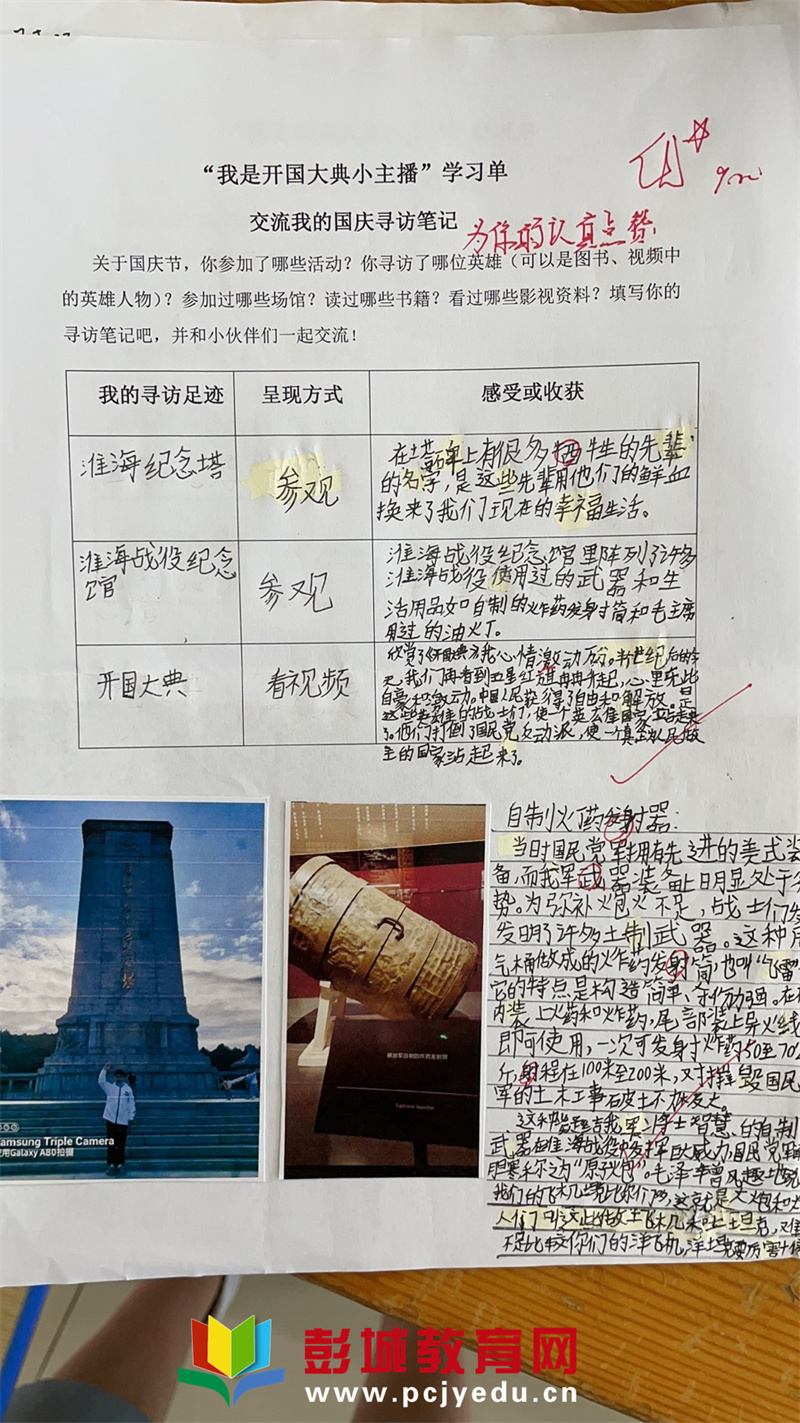 “我是开国大典小主播”学习单
优
交流我的国庆寻访笔记
为你的认真点赞
关于国庆节，你参加了哪些活动？你寻访了哪位英雄（可以是图书、视频中
的英雄人物）？参加过哪些场馆？读过哪些书籍？看过哪些影视资料？填写你的
寻访笔记吧，并和小伙伴们一起交流！
我的寻访足迹 呈现方式 感受或收获
淮海纪念塔
参观
在塔石碑上有很多牺牲的先辈
的名字，是这些先辈用他们的鲜血
换来了我们现在的幸福生活。
淮海战役纪念
馆
参观
淮海战役纪念馆里陈列了许多
淮海战役使用过的武器和生
活用品如自制的炸药发射筒和毛主席
用过的油灯。
开国大典
看视频
欣赏了《开国大典》我心情激动万分。新世纪后的今
天，我们再看到五星红旗冉冉升起，心里无比
自豪和激动。中国人民获得了自由和解放。是
这些英雄的战士们，使一个
了。他们打倒了国民党反动派，使一个真正人民做
主的国家站起来了。
自制火药发射器：
当时国民党军拥有先进的美式装
备，而我军武器装备上日明显处于劣
势。为弥补火炮不足，战士们发
发明了许多土制武器。这种用
气桶做成的炸药发射筒，也叫“飞雷
它的特点是构造简单、
内装上火药和炸药，尾部装上导火线
即可使用，一次可发射炸药50至70
斤，射程在100米至200米，对摧毁国民
军的土木工事
武器在淮海战役中发挥
胆寒称之为“原子炮”。毛泽东曾风趣地说
不足比较你们的洋飞机，洋坦克要厉害十倍
解放军自制的炸药发射筒
Explosive launcher
Samsung Triple Camera
应用Galaxy A80拍摄
彭城教育网
www.pcjyedu.cn